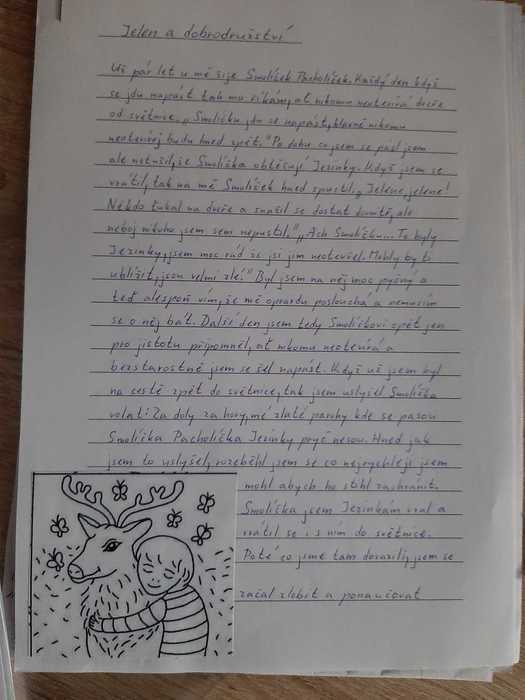 Jelen a dobrodružství
Už pár let u mě žije Smolíček Pacholíček. Každý den když
se jdu napást tak mu říkám, ať nikomu neotevírá dveře
od světnice. „Smolíčku jdu se napást, hlavně nikomu
neotevírej budu hned zpět." Po dobu co jsem se pásl jsem
ale netušil, že Smolíčka obtěžují Jezinky. Když jsem se
vrátil, tak na mě Smolíček hned spustil, „Jelene, jelene!
Někdo ťukal na dveře a snažil se dostat dovnitř, ale
neboj nikoho jsem sem nepustil." „Ach Smolíčku... To byly
Jezinky, jsem moc rád že jsi jim neotevřel. Mohly by ti
ublížit, jsou velmi zlé." Byl jsem na něj moc pyšný a
teď alespoň vím, že mě opravdu poslouchá a nemusím
se o něj bát. Další den jsem tedy Smolíčkovi zpět jen
pro jistotu připomněl, ať nikomu neotevírá a
bezstarostně jsem se šel napást. Když už jsem byl
na cestě zpět do světnice, tak jsem uslyšel Smolíčka
volat: Za doly za hory, mé zlaté parohy kde se pasou
Smolíčka Pacholíčka Jezinky pryč nesou. Hned jak
jsem to uslyšel, rozeběhl jsem se co nejrychleji jsem
mohl abych ho stihl zachránit.
Smolíčka jsem Jezinkám vzal a
vrátil se i s ním do světnice.
Poté co jsme tam dorazili, jsem se
začal zlobit a ponaučovat